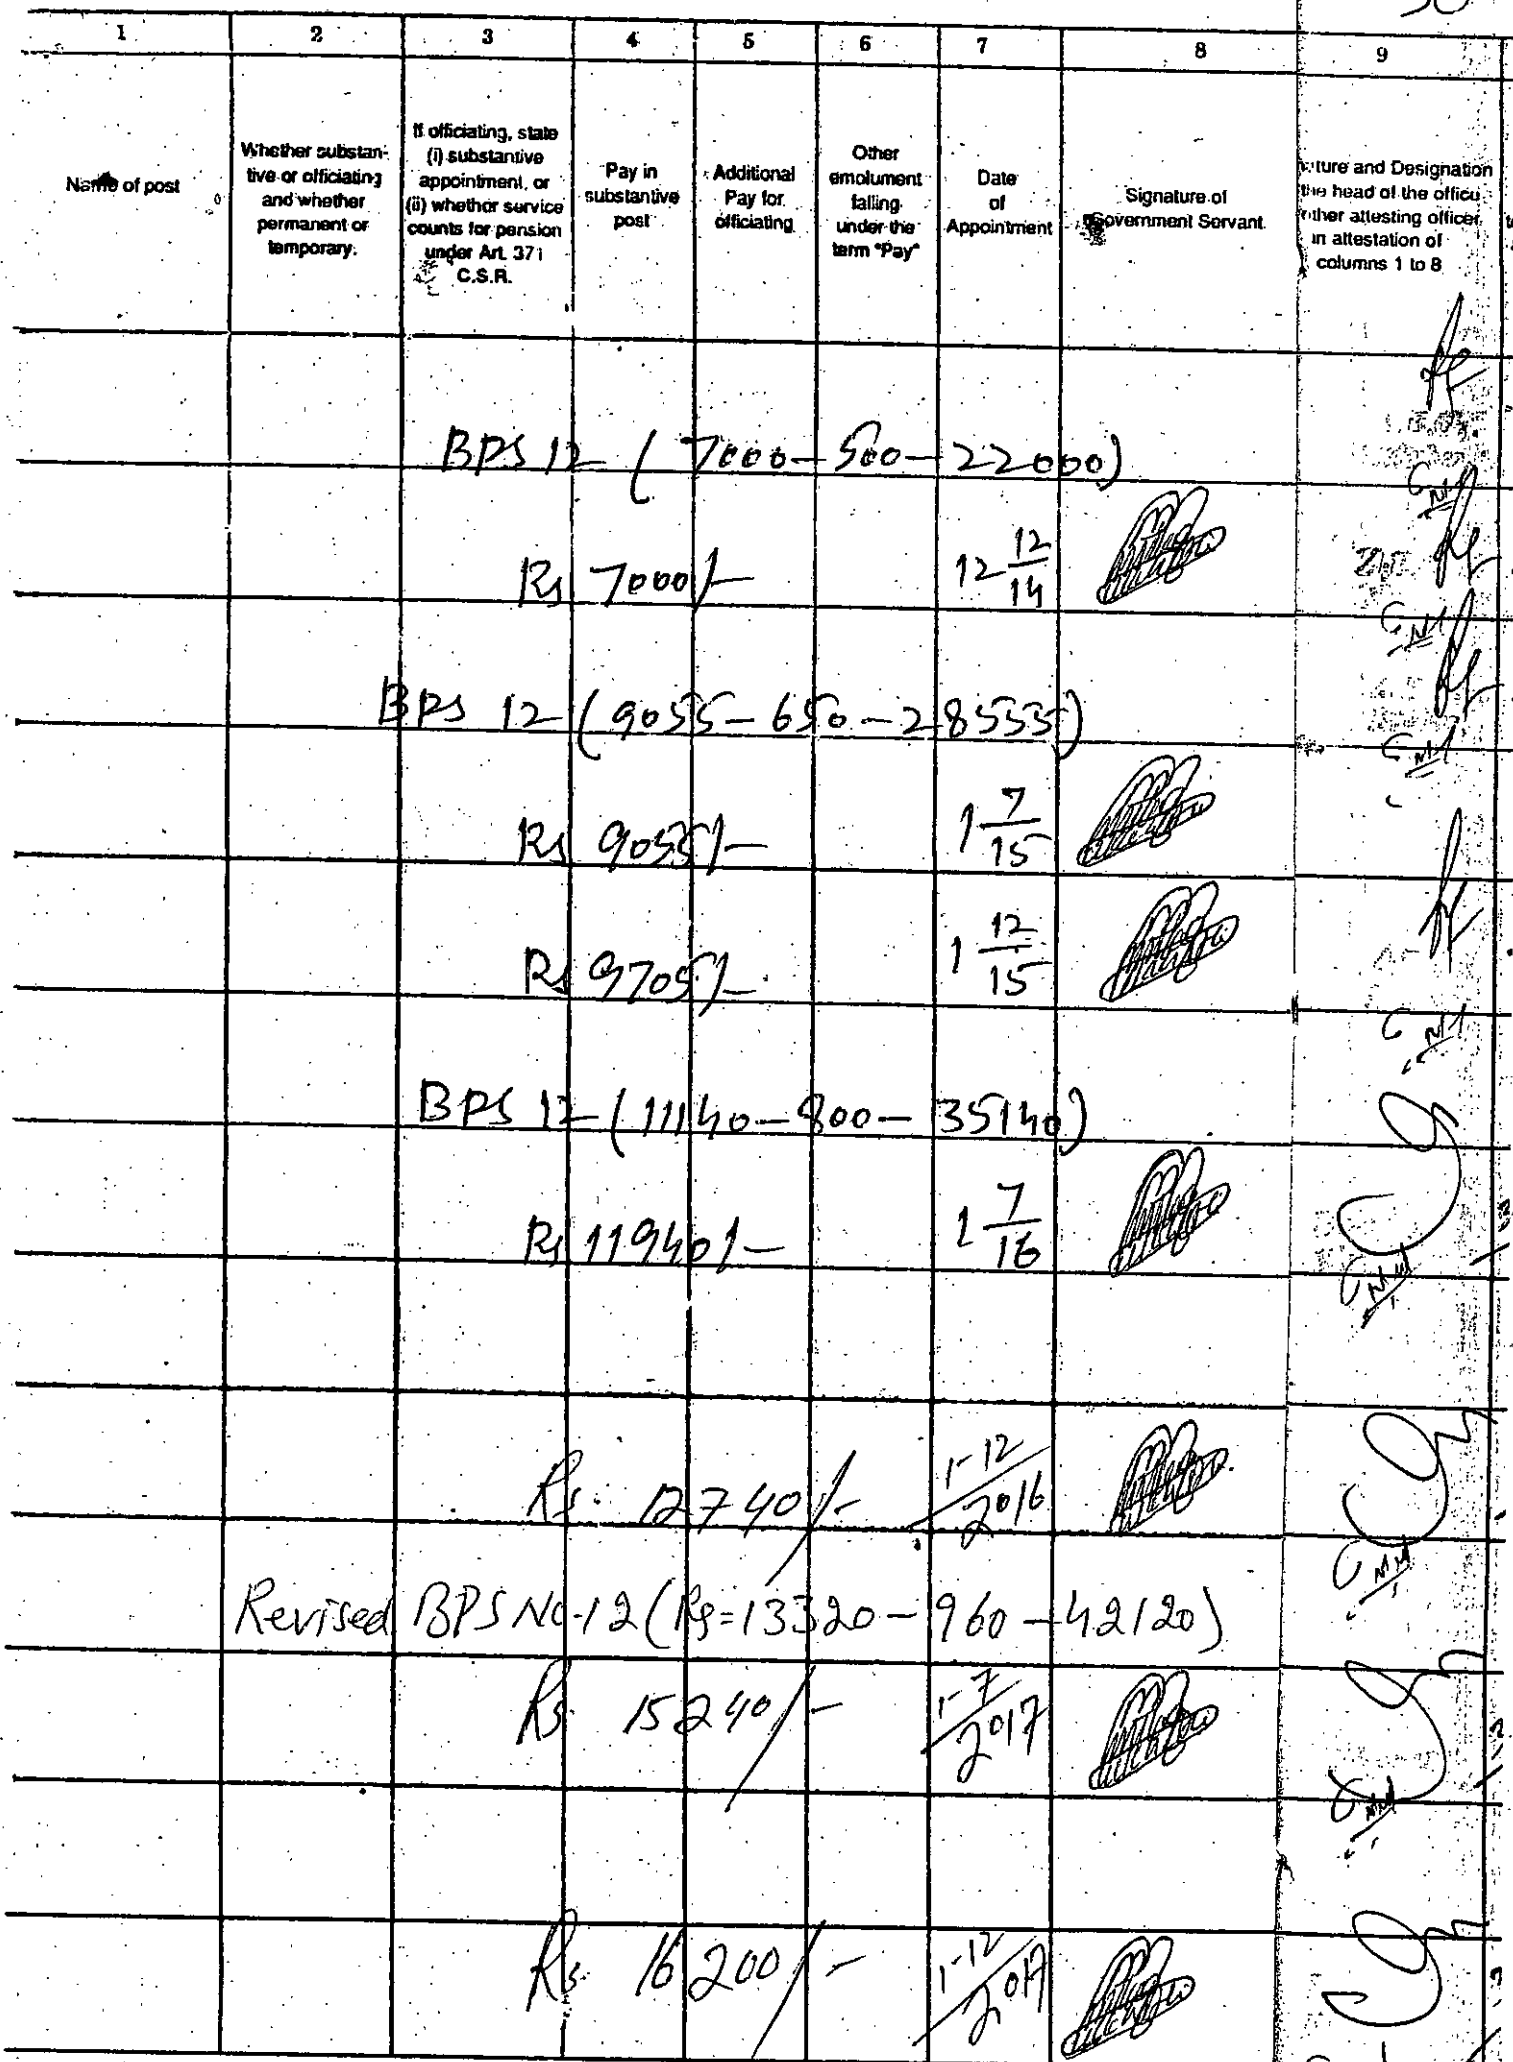 1 2 3 4 5 6 7 8 9
Name of post
Whether substan-
tive or officiating
and whether
permanent or
temporary.
If officiating, state
(i) substantive
appointment, or
(ii) whether service
counts for pension
under Art. 371
C.S.R.
Pay in
substantive
post
Additional
Pay for
officiating
Other
emolument
falling
under the
term "Pay"
Date
of
Appointment
Signature of
Government Servant
ture and Designation
the head of the office
other attesting officer
in attestation of
columns 1 to 8
BPS 12 (7000-500-22000)
Rs 7000/- 12 12/14
BPS 12 (9055-650-28555)
Rs 9055/- 1 7/15
Rs 9705/- 1 12/15
BPS 12 (11140-800-35140)
Rs 11940/- 1 7/16
Rs. 12740/- 1-12/2016
Revised BPS No-12 (Rs=13320-960-42120)
Rs. 15240/- 1-7/2017
Rs. 16200/- 1-12/2017